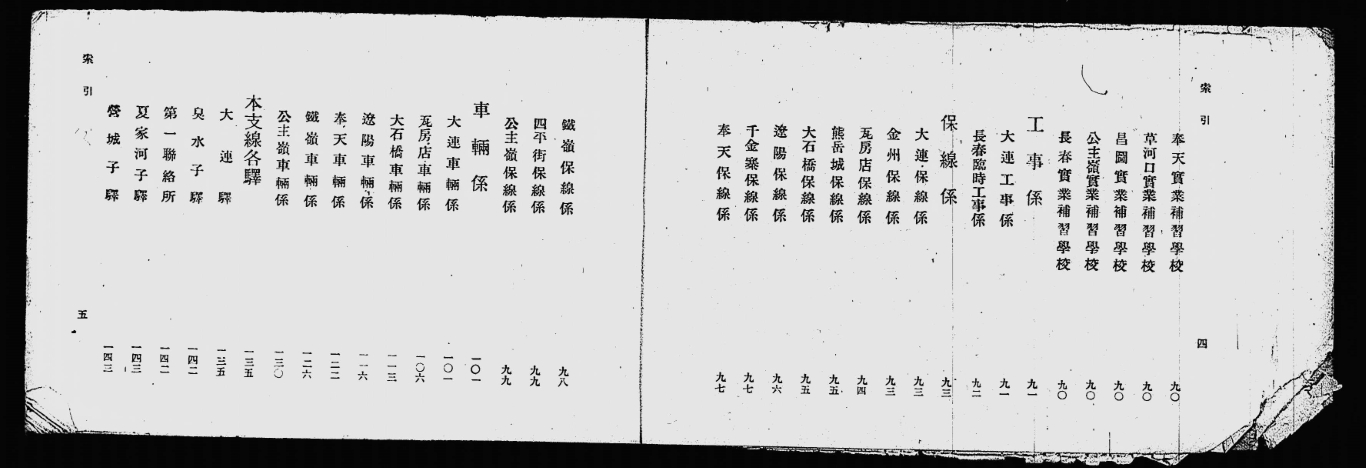 索引
四
奉天實業補習學校 九〇
草河口實業補習學校 九〇
昌圖實業補習學校 九〇
公主嶺實業補習學校 九〇
長春實業補習學校 九〇
工事係 九一
大連工事係 九一
長春臨時工事係 九二
保線係 九三
大連保線係 九三
金州保線係 九三
瓦房店保線係 九四
熊岳城保線係 九五
大石橋保線係 九五
遼陽保線係 九六
千金寨保線係 九七
奉天保線係 九七
鐵嶺保線係 九八
四平街保線係 九九
公主嶺保線係 九九
車輛係 一〇一
大連車輛係 一〇一
瓦房店車輛係 一〇六
大石橋車輛係 一一三
遼陽車輛係 一一六
奉天車輛係 一二二
鐵嶺車輛係 一二六
公主嶺車輛係 一三〇
本支線各驛 一三五
大連驛 一三五
臭水子驛 一四二
第一聯絡所 一四二
夏家河子驛 一四三
營城子驛 一四三
索引
五